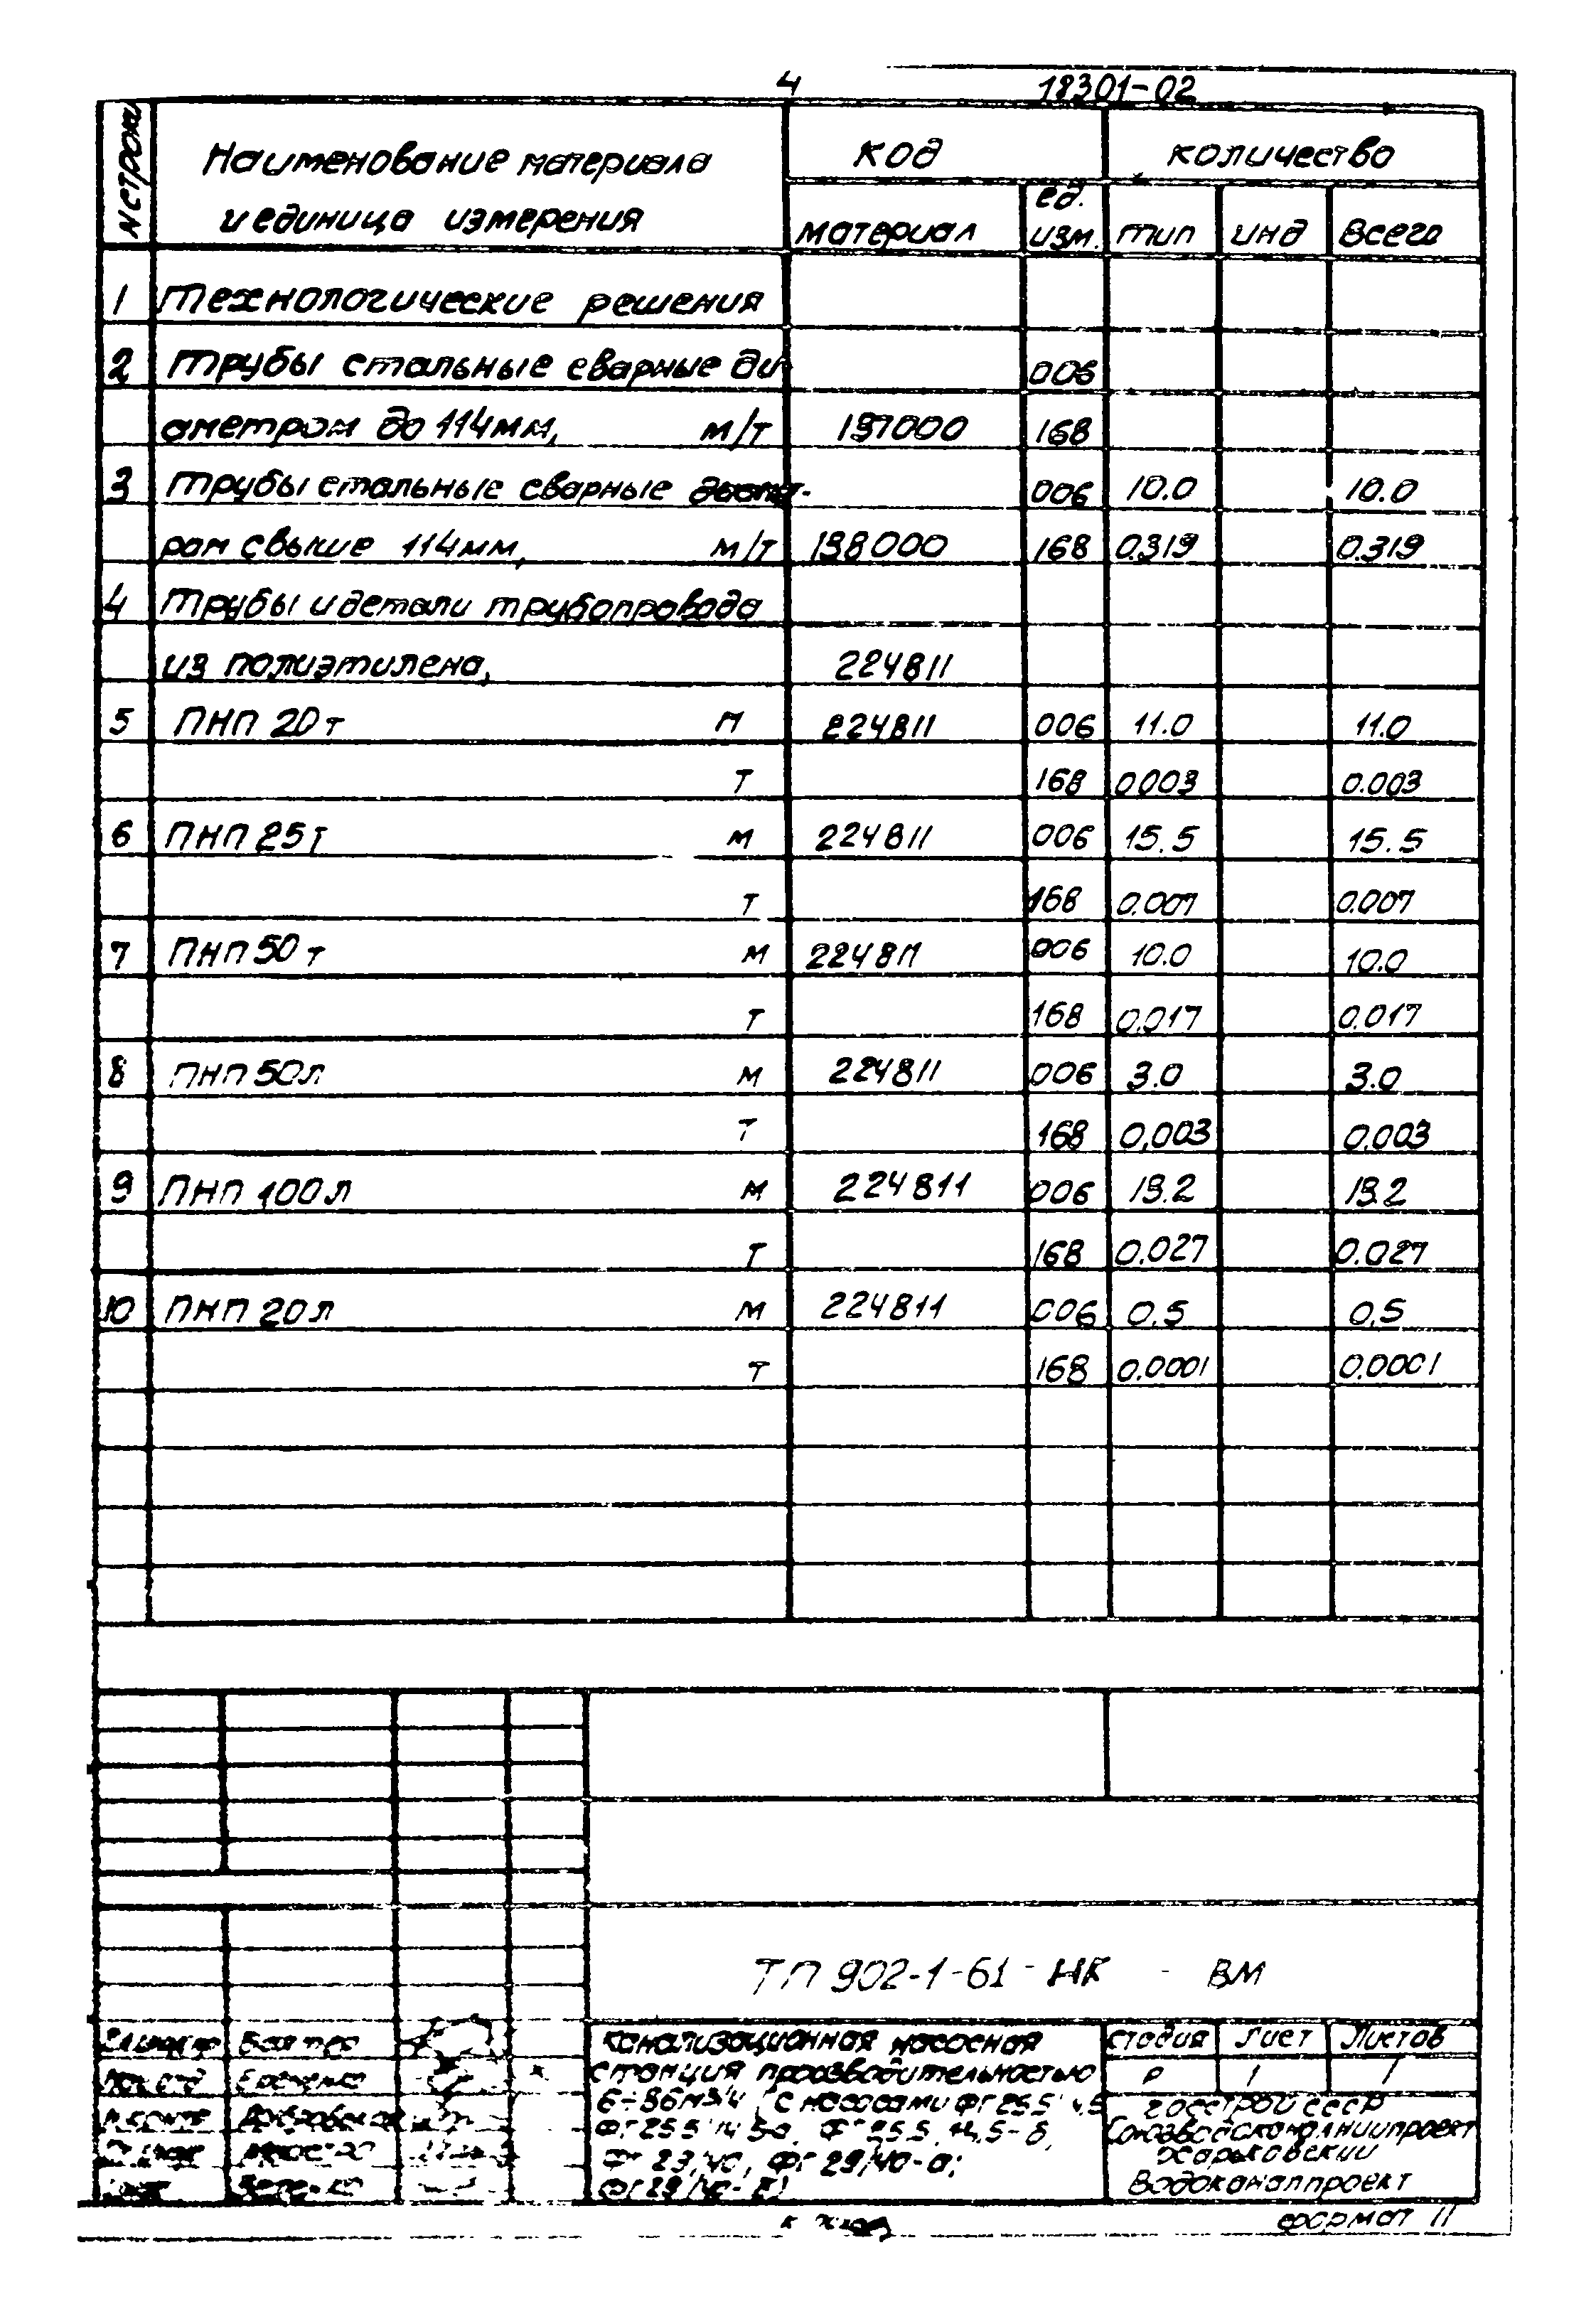 4 18301-02
N строки Наименование материала и единица измерения код количество
материал ед. изм. тип инд всего
1 Технологические решения
2 Трубы стальные сварные ди 006
аметром до 114мм, м/т 197000 168
3 Трубы стальные сварные 006 10.0 10.0
ром свыше 114мм, м/т 198000 168 0.319 0.319
4 Трубы и детали трубопровода
из полиэтилена, 224811
5 ПНП 20т м 224811 006 11.0 11.0
т 168 0.003 0.003
6 ПНП 25т м 224811 006 15.5 15.5
т 168 0.007 0.007
7 ПНП 50т м 224811 006 10.0 10.0
т 168 0.017 0.017
8 ПНП 50л м 224811 006 3.0 3.0
т 168 0,003 0.003
9 ПНП 100л м 224811 006 13.2 13.2
т 168 0.027 0.027
10 ПНП 20л м 224811 006 0.5 0,5
т 168 0.0001 0.0001
ТП 902-1-61 - НК - ВМ
Канализационная насосная
станция производительностью
6÷86м3/ч (с насосами ФГ25.5
ФГ 29/40-а;
стадия Лист Листов
Р 1 1
Госстрой СССР
Союзводоканалниипроект
Харьковский
Водоканалпроект
формат 11